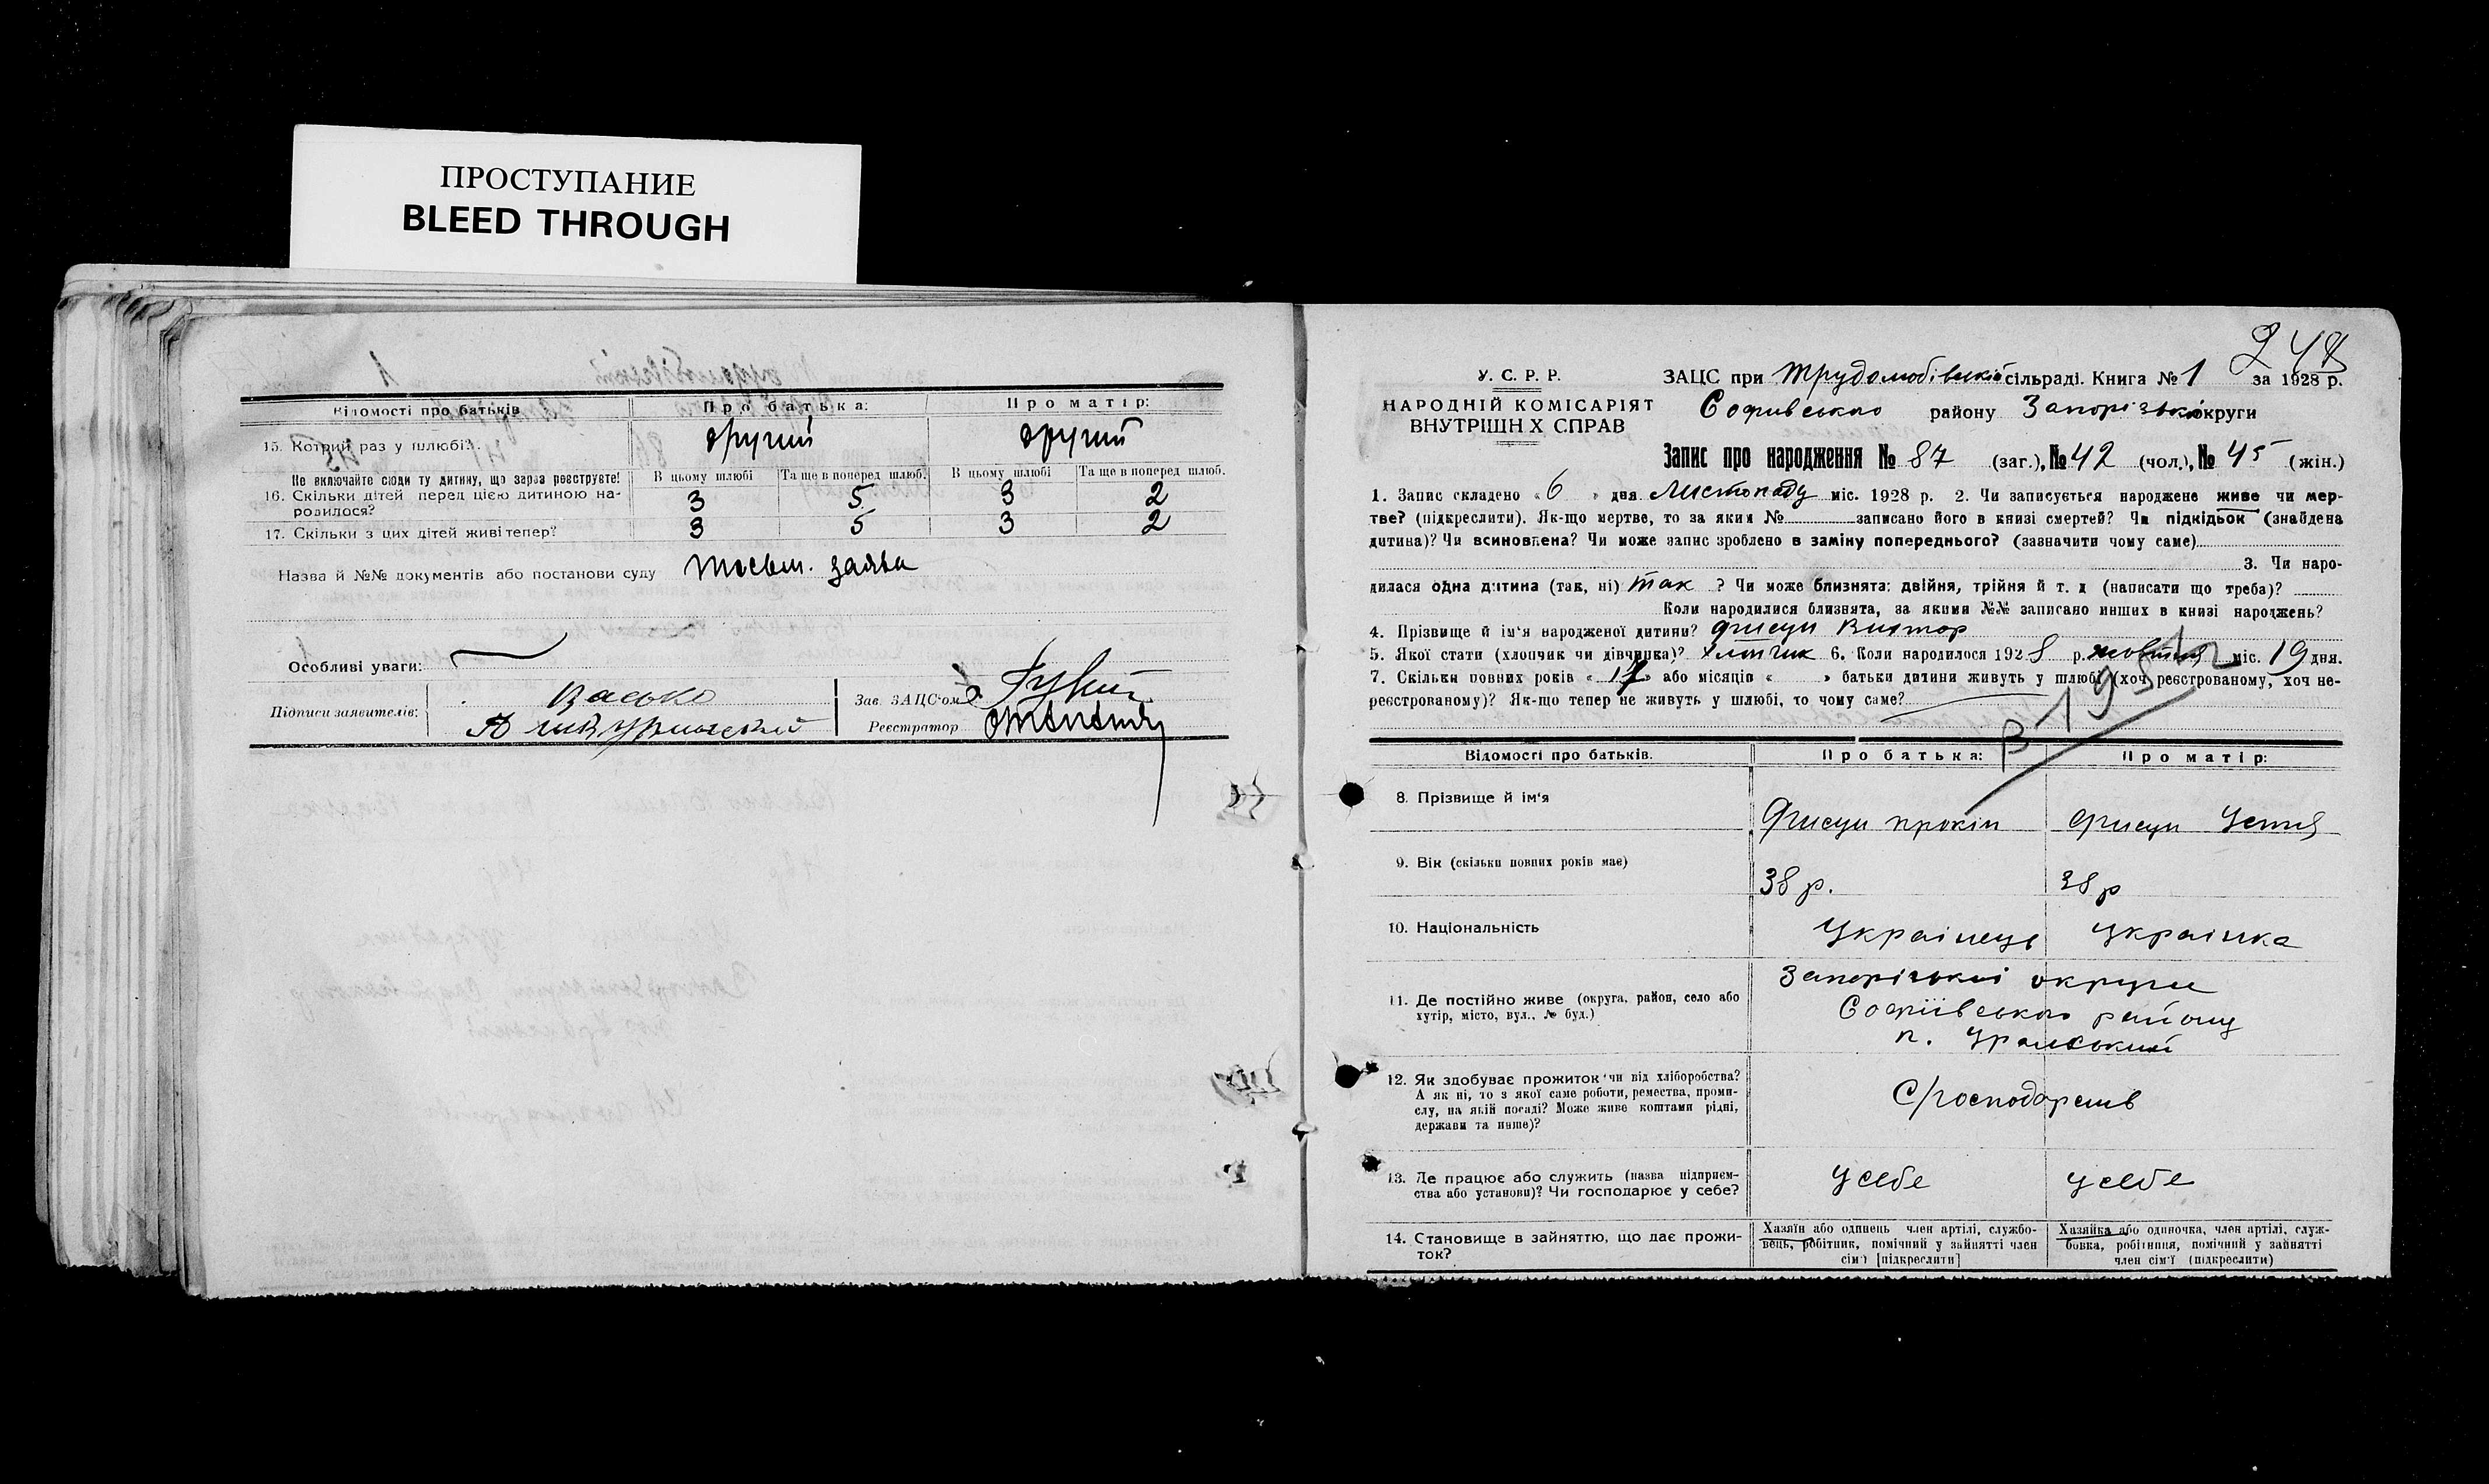 ПРОСТУПАНИЕ
BLEED THROUGH
Відомості про батьків
Про батька:
Про матір:
15. Котрий раз у шлюбі?
другий
другий
Не включайте сюди ту дитину, що зараз реєструєте!
В цьому шлюбі
Та ще в поперед шлюб.
В цьому шлюбі
Та ще в поперед шлюб.
16. Скільки дітей перед цією дитиною на-
родилося?
3
5
3
2
17. Скільки з цих дітей живі тепер?
3
5
3
2
Назва й №№ документів або постанови суду
заява
Особливі уваги:
Підписи заявителів:
Васько
Зав. ЗАЦС'ом
Реєстратор
248
У. С. Р. Р.
НАРОДНІЙ КОМІСАРІЯТ
ВНУТРІШН Х СПРАВ
ЗАЦС при Трудолюбівській сільраді. Книга № 1 за 1928 р.
Софивського району Запорізької округи
Запис про народження № 87 (заг.), № 42 (чол.), № 45 (жін.)
1. Запис складено «6» дня Листопаду міс. 1928 р. 2. Чи записується народжене живе чи мер-
тве? (підкреслити). Як-що мертве, то за яким № записано його в книзі смертей? Чи підкідьок (знайдена
дитина)? Чи всиновлена? Чи може запис зроблено в заміну попереднього? (зазначити чому саме)
3. Чи наро-
дилася одна дитина (так, ні) Так ? Чи може близнята: двійня, трійня й т. д (написати що треба)?
Коли народилися близнята, за якими №№ записано инших в книзі народжень?
4. Прізвище й ім'я народженої дитини? Фисун Виктор
5. Якої стати (хлопчик чи дівчинка)? хлопчик 6. Коли народилося 1928 р. жовтня міс. 19 дня.
7. Скільки повних років «17» або місяців « » батьки дитини живуть у шлюбі (хоч реєстрованому, хоч не-
реєстрованому)? Як-що тепер не живуть у шлюбі, то чому саме?
Відомості про батьків.
Про батька:
Про матір:
8. Прізвище й ім'я
Фисун Прокіп
Фисун Устия
9. Вік (скільки повних років має)
38 р.
38 р
10. Національність
Українець
Українка
11. Де постійно живе (округа, район, село або
хутір, місто, вул., № буд.)
Запорізької округи
Софіївського району
п. Уральський
12. Як здобуває прожиток чи від хліборобства?
А як ні, то з якої саме роботи, ремества, проми-
слу, на якій посаді? Може живе коштами рідні,
держави та инше)?
С/господарств
13. Де працює або служить (назва підприєм-
ства або установи)? Чи господарює у себе?
У себе
У себе
14. Становище в зайняттю, що дає прожи-
ток?
Хазяїн або одинець член артілі, службо-
вець, робітник, помічний у зайнятті член
сім'ї [підкреслити]
Хазяйка або одиночка, член артілі, служ-
бовка, робітниця, помічний у зайнятті
член сім'ї (підкреслити)